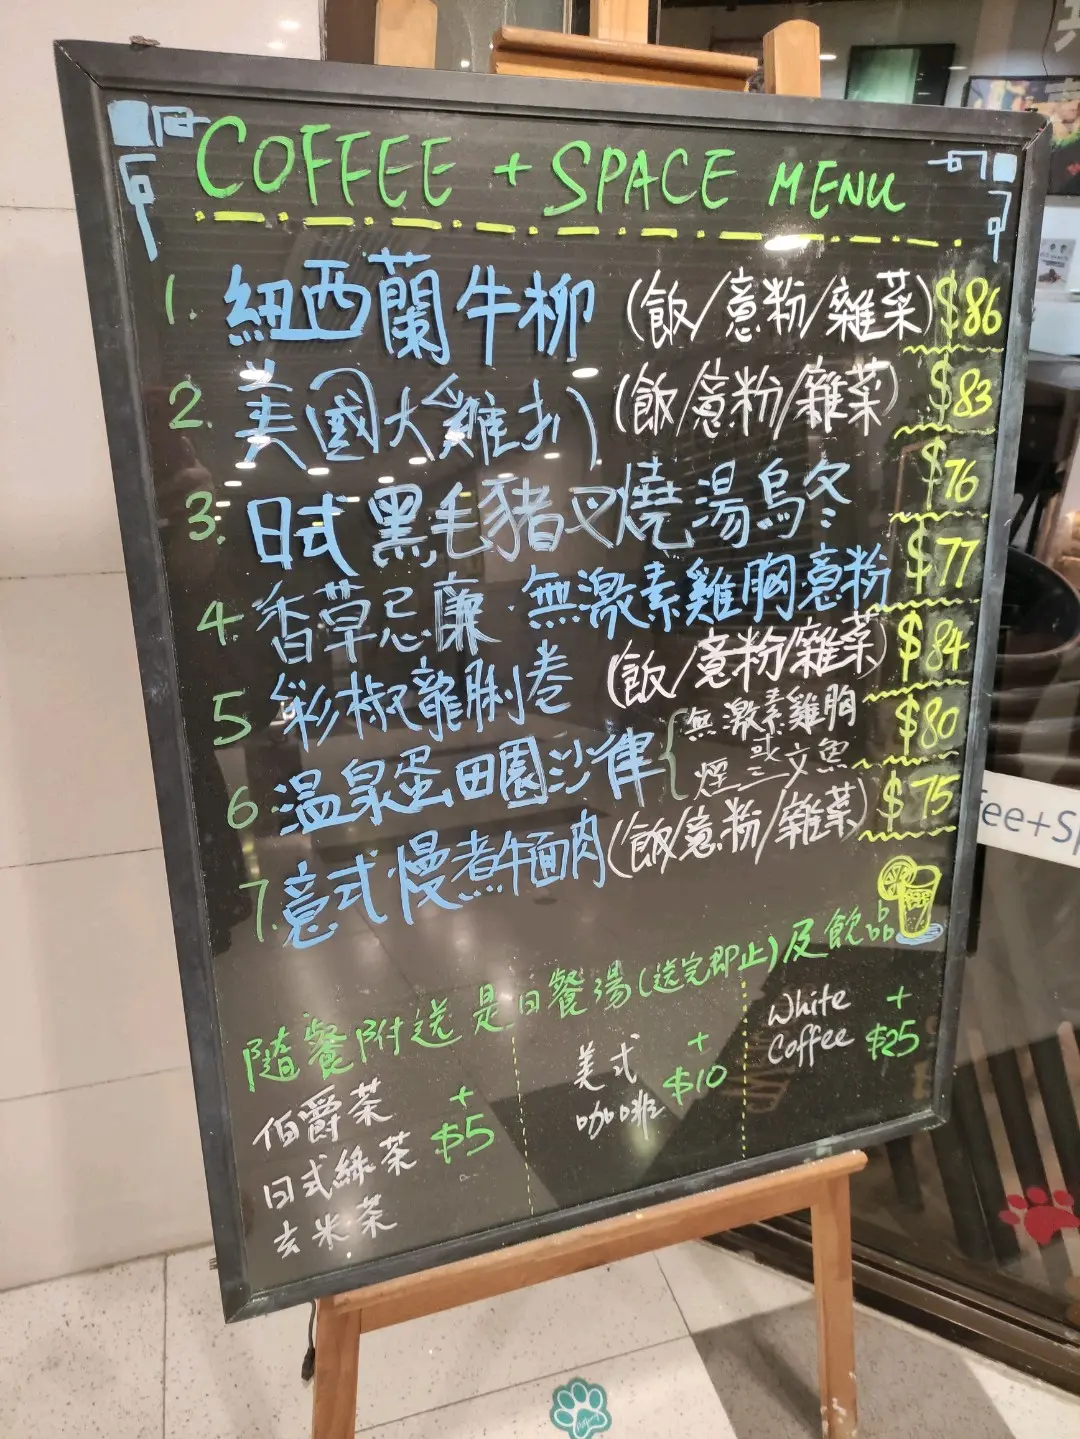 COFFEE + SPACE MENU
1. 紐西蘭牛柳 (飯/意粉/雜菜) $86
2. 美國大雞扒 (飯/意粉/雜菜) $83
3. 日式黑毛豬叉燒湯烏冬 $76
4. 香草忌廉無激素雞胸意粉 $77
5 彩椒龍脷卷 (飯/意粉/雜菜) $84
6 温泉蛋田園沙律 { 無激素雞胸 $80
或
煙三文魚
7. 意式慢煮牛面肉 (飯/意粉/雜菜) $75
隨餐附送是日餐湯(送完即止)及飲品
伯爵茶
日式綠茶
玄米茶
+
$5
美式
咖啡
+
$10
White
Coffee
+
$25
ee+Sp